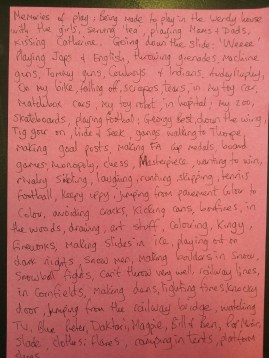 Memories of play, Being made to play in the Wendy house
with the girls, serving tea, playing Mums & Dads,
Kissing Catherine. Going down the slide, 'Weeee
Playing Japs & English, throwing grenades, Machine
guns, Tommy guns, Cowboys & Indians,
On my bike, falling off, scrapes, tears, in my toy car,
Matchbox cars, my toy robot, in hospital, my zoo,
Skateboards, playing football, George Best, down the wing,
Tig your on, hide & seek, gangs walking to Thorpe,
making goal posts, Making FA cup medals, board
games, monopoly, chess, wanting to win,
rivalry, skating, laughing, running, skipping, tennis
football, keepy uppy, jumping from pavement color to
color, avoiding cracks, Kicking cans, bonfires, in
the woods, drawing, art stuff, colouring, Kingy,
fireworks, Making Slides in ice, playing out on
dark nights, Snow men, Making boulders in snow,
snowball fights, can't throw very well, railway lines,
in cornfields, making dens, lighting fires, knocky
door, jumping from the railway bridge, watching
TV, Blue Peter, Daktari, Magpie, Bill & Ben,
Slade, clothes, flares, camping in tents, platform